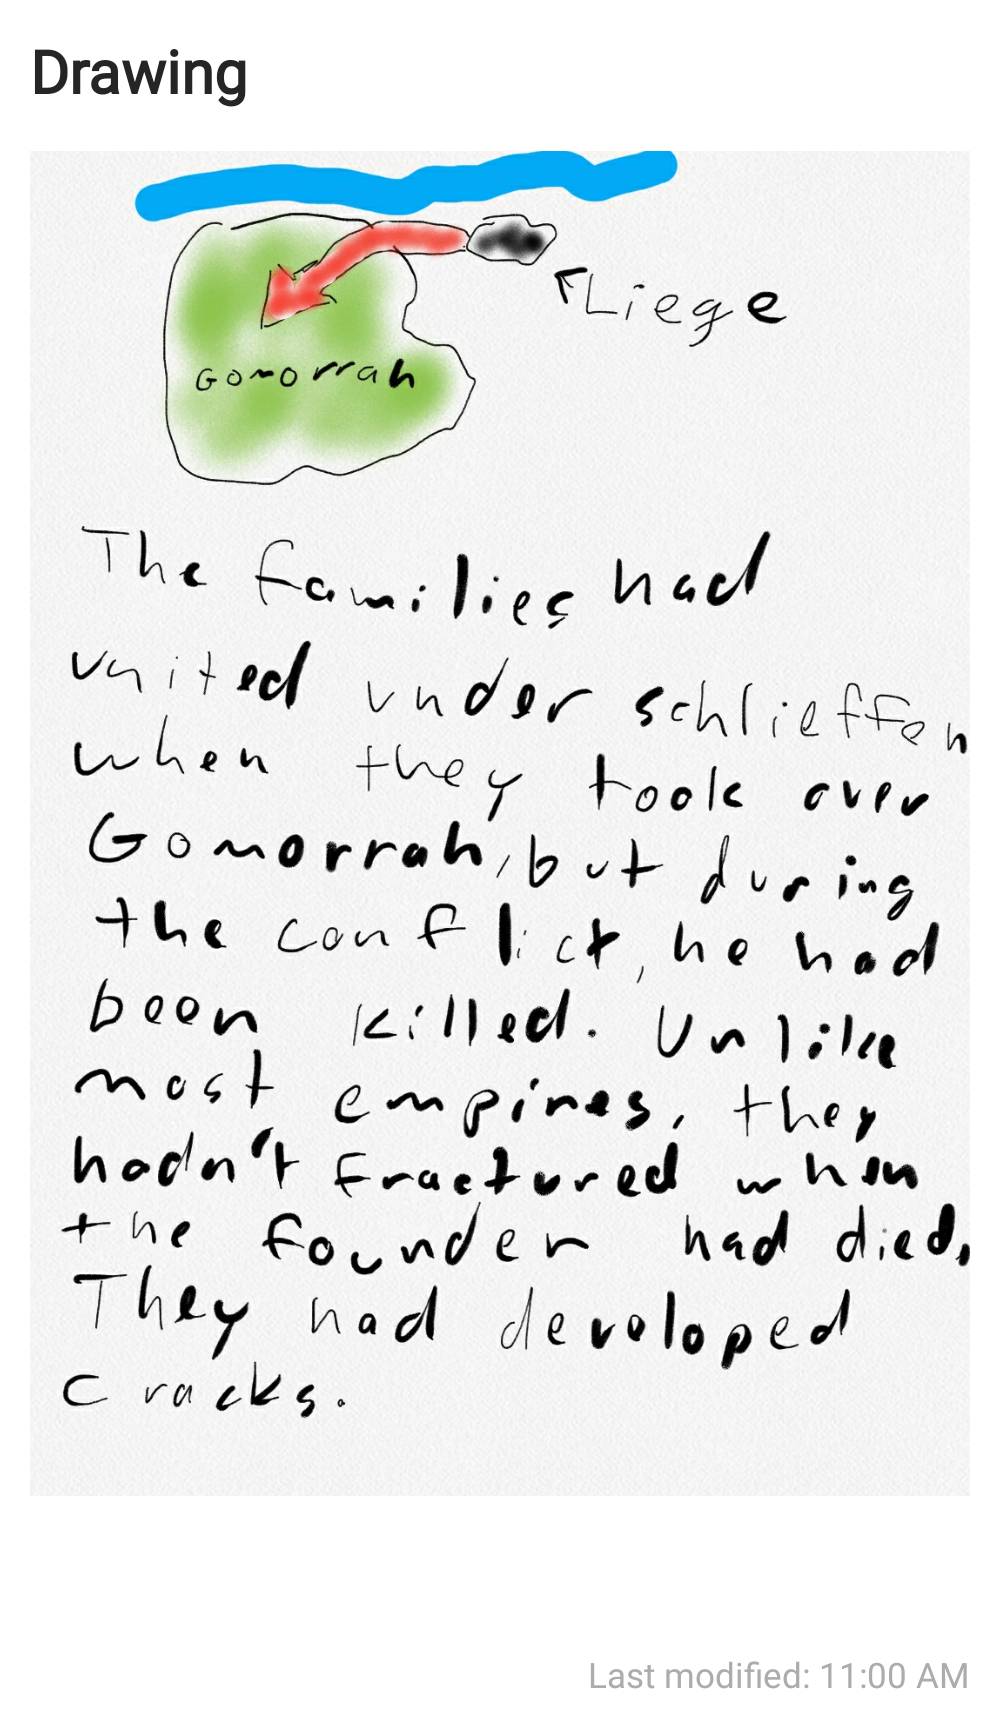 Drawing
Liege
Gomorrah
The families had
united under schlieffen
when they took over
Gomorrah, but during
the conflict, he had
been killed. Unlike
most empires, they
hadn't fractured when
the founder had died.
They had developed
cracks.
Last modified: 11:00 AM